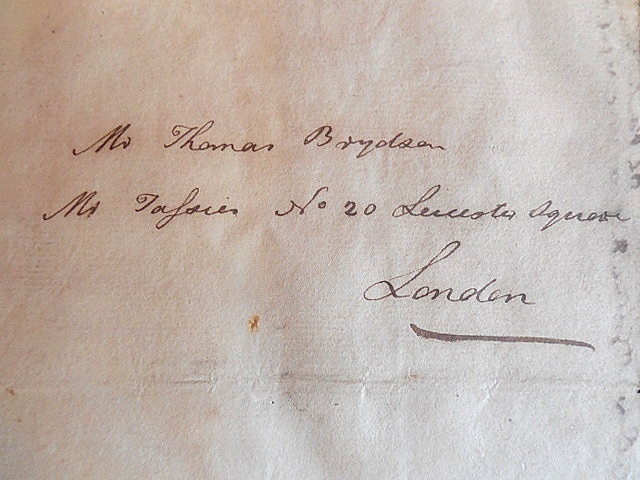 Mr Thomas Brydson
Mr Tassies No 20 Leicester Square
London